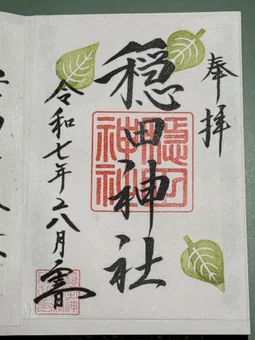 奉拝
穏田神社
穏田
神社
令和七年八月